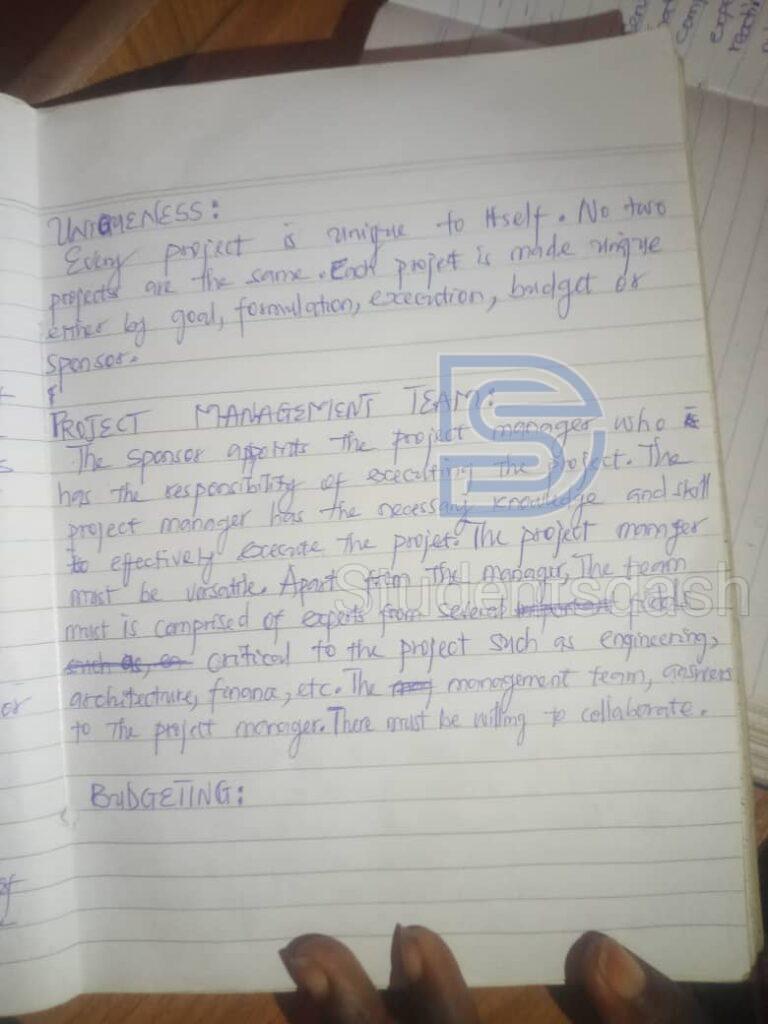 UNIQUENESS:
Every project is unique to itself. No two
projects are the same. Each projet is made unique
either by goal, formulation, execution, budget or
sponsor.
PROJECT MANAGEMENT TEAM:
The sponsor appoints the project manager who
has the responsibility of executing the project. The
project manager has the necessary knowledge and skill
to effectively execute the projet. The project manager
must be versatile. Apart from the manager, The team
must is comprised of experts from several fields
critical to the project such as engineering,
architecture, finance, etc. The management team, answers
to the project manager. There must be willing to collaborate.
BUDGETING:
Studentsdash
or
of